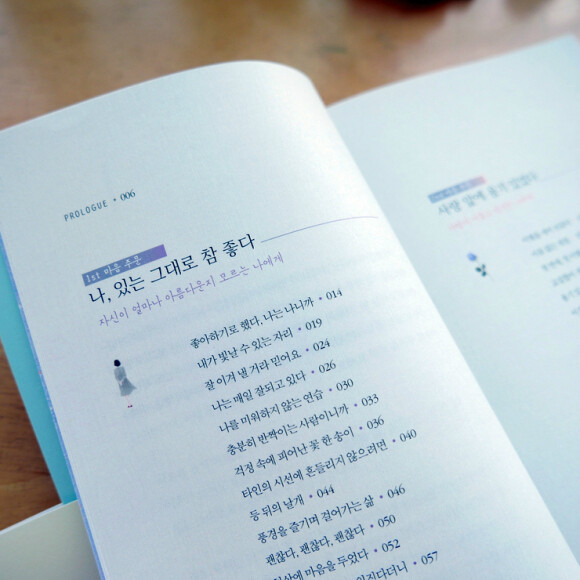 PROLOGUE • 006
1st 마음 주문
나, 있는 그대로 참 좋다
자신이 얼마나 아름다운지 모르는 나에게
좋아하기로 했다, 나는 나니까 • 014
내가 빛날 수 있는 자리 • 019
잘 이겨 낼 거라 믿어요 • 024
나는 매일 잘되고 있다 • 026
나를 미워하지 않는 연습 • 030
충분히 반짝이는 사람이니까 • 033
걱정 속에 피어난 꽃 한 송이 • 036
타인의 시선에 흔들리지 않으려면 • 040
등 뒤의 날개 • 044
풍경을 즐기며 걸어가는 삶 • 046
괜찮다, 괜찮다, 괜찮다 • 050
마음을 두었다 • 052
• 057
사랑 앞에